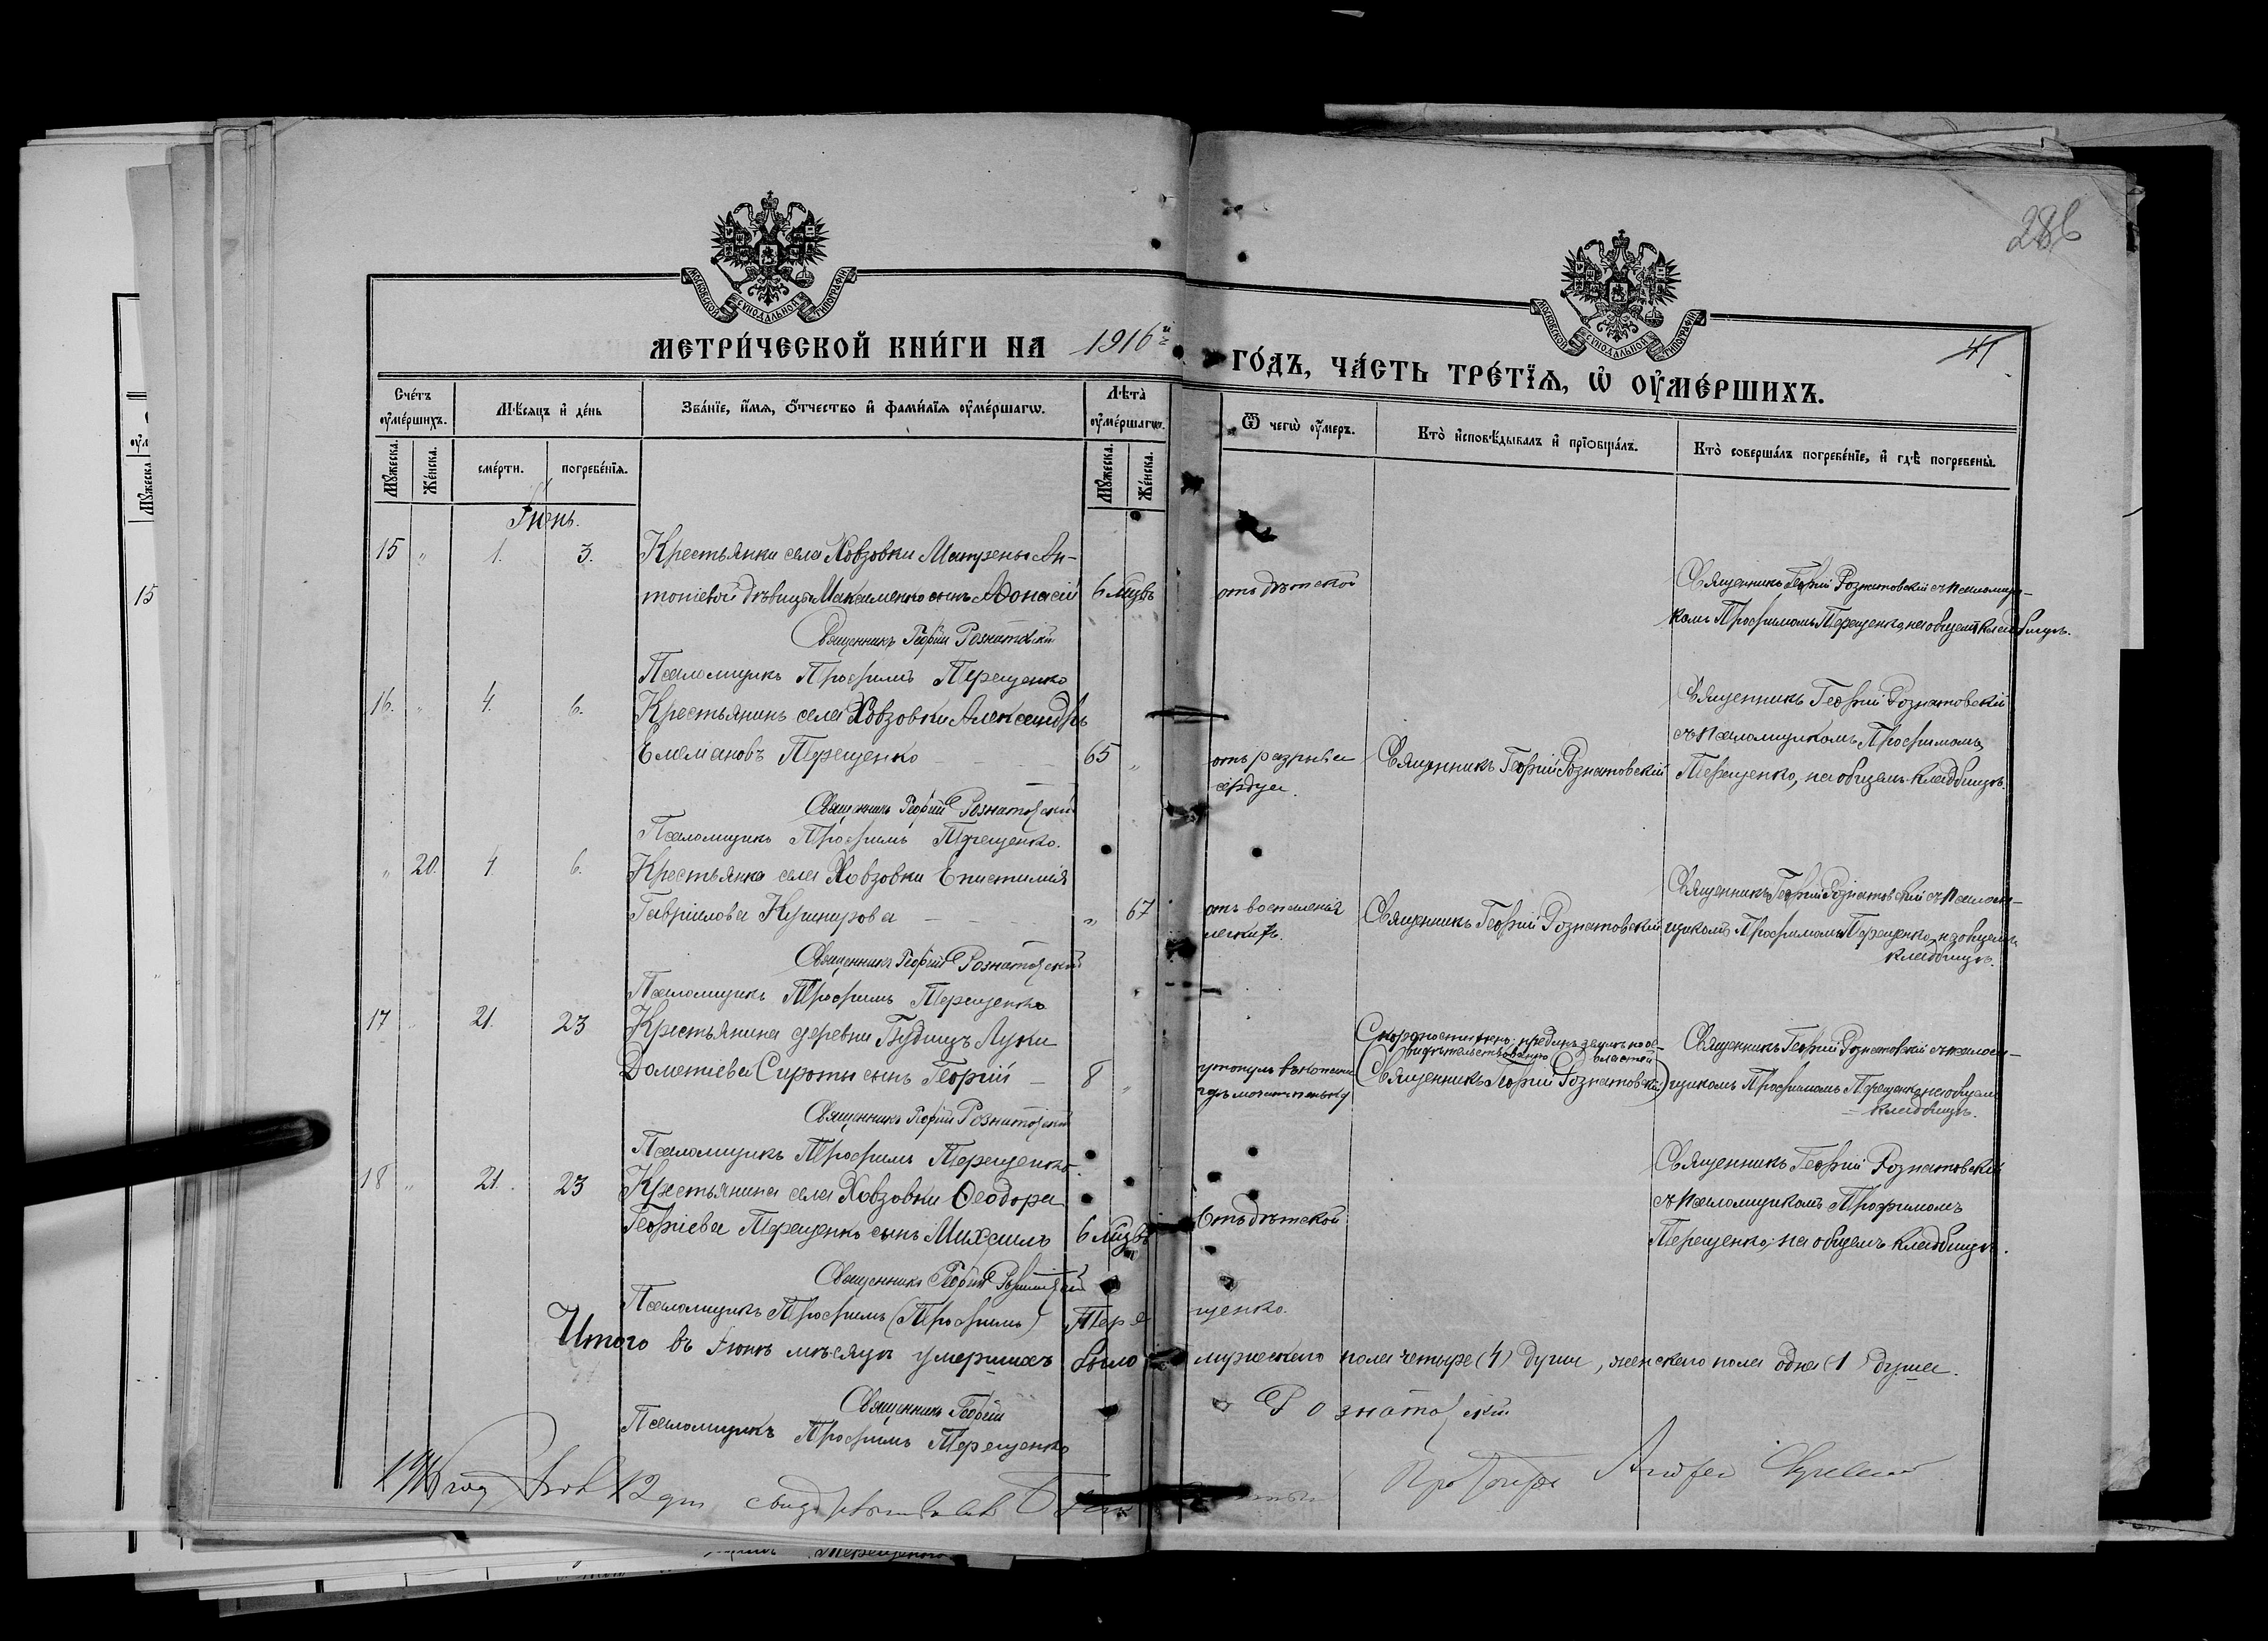 286
МОСКОВСКОЙ СѴНОДАЛЬНОЙ ТИПОГРАФІИ
МОСКОВСКОЙ СѴНОДАЛЬНОЙ ТИПОГРАФІИ
МЕТРИ́ЧЕСКОЙ КНИ́ГИ НА 1916й ГО́ДЪ, ЧА́СТЬ ТРЕ́ТЇѦ, Ѡ ОУ҆МЕ́РШИХЪ.
41
Сче́тъ оу҆ме́ршихъ.
Мꙋ́жеска.
Же́нска.
М́ѣсѧцъ и҆ де́нь
сме́рти.
погребе́нїѧ.
Зва́нїе, и҆́мѧ, ѻ҆́тчество и҆ фами́лїѧ оу҆ме́ршагѡ.
Лѣ́та оу҆ме́ршагѡ.
Мꙋ́жеска.
Же́нска.
Ѿ чегѡ̀ оу҆́меръ.
Кто̀ и҆сповѣ́дывалъ и҆ прїѡбща́лъ.
Кто̀ соверша́лъ погребе́нїе, и҆ гдѣ̀ погребены̀.
Іюнь.
15 " 1. 3. Крестьянки села Ховзовки Матрены Ан-
тоніевой дѣвицы Максименко сынъ Аѳонасій 6 мцвъ отъ дѣтской Священникъ Георгій Рознатовскій съ псаломщи-
комъ Трофимомъ Терещенко, на общемъ кладбищѣ.
Священникъ Георгій Рознатовскій
Псаломщикъ Трофимъ Терещенко
16. " 4. 6. Крестьянинъ села Ховзовки Александръ
Емеліановъ Терещенко 65 " отъ разрыва сердца. Священникъ Георгій Рознатовскій
Священникъ Георгій Рознатовскій
съ псаломщикомъ Трофимомъ
Терещенко, на общемъ кладбищѣ.
Священникъ Георгій Рознатовскій
Псаломщикъ Трофимъ Терещенко.
" 20. 4. 6. Крестьянка села Ховзовки Епистимія
Гавріилова Кушнирова " 67 отъ воспаленія легкихъ. Священникъ Георгій Рознатовскій
Священникъ Георгій Рознатовскій съ псалом-
щикомъ Трофимомъ Терещенко, на общемъ
кладбищѣ.
Священникъ Георгій Рознатовскій
Псаломщикъ Трофимъ Терещенко
17 " 21. 23 Крестьянина деревни Будищъ Луки
Дометіева Сироты сынъ Георгій 8 " утонулъ въ копани гдѣ мочатъ пеньку
Скоропостижно; преданъ землѣ по
властей
(Священникъ Георгій Рознатовскій)
Священникъ Георгій Рознатовскій съ псалом-
щикомъ Трофимомъ Терещенко, на общемъ
кладбищѣ.
Священникъ Георгій Рознатовскій
Псаломщикъ Трофимъ Терещенко.
18 " 21. 23 Крестьянина села Ховзовки Ѳеодора
Георгіева Терещенко сынъ Михаилъ 6 мцвъ Отъ дѣтской
Священникъ Георгій Рознатовскій
съ псаломщикомъ Трофимомъ
Терещенко, на общемъ кладбищѣ.
Священникъ Георгій Рознатовскій
Псаломщикъ Трофимъ (Трофимъ) Терещенко.
Итого въ Іюнѣ мѣсяцѣ умершихъ было мужескаго пола четыре (4) души, женскаго пола одна (1) душа.
Священникъ Георгій Рознатовскій
Псаломщикъ Трофимъ Терещенко
12 дня Андрей
15